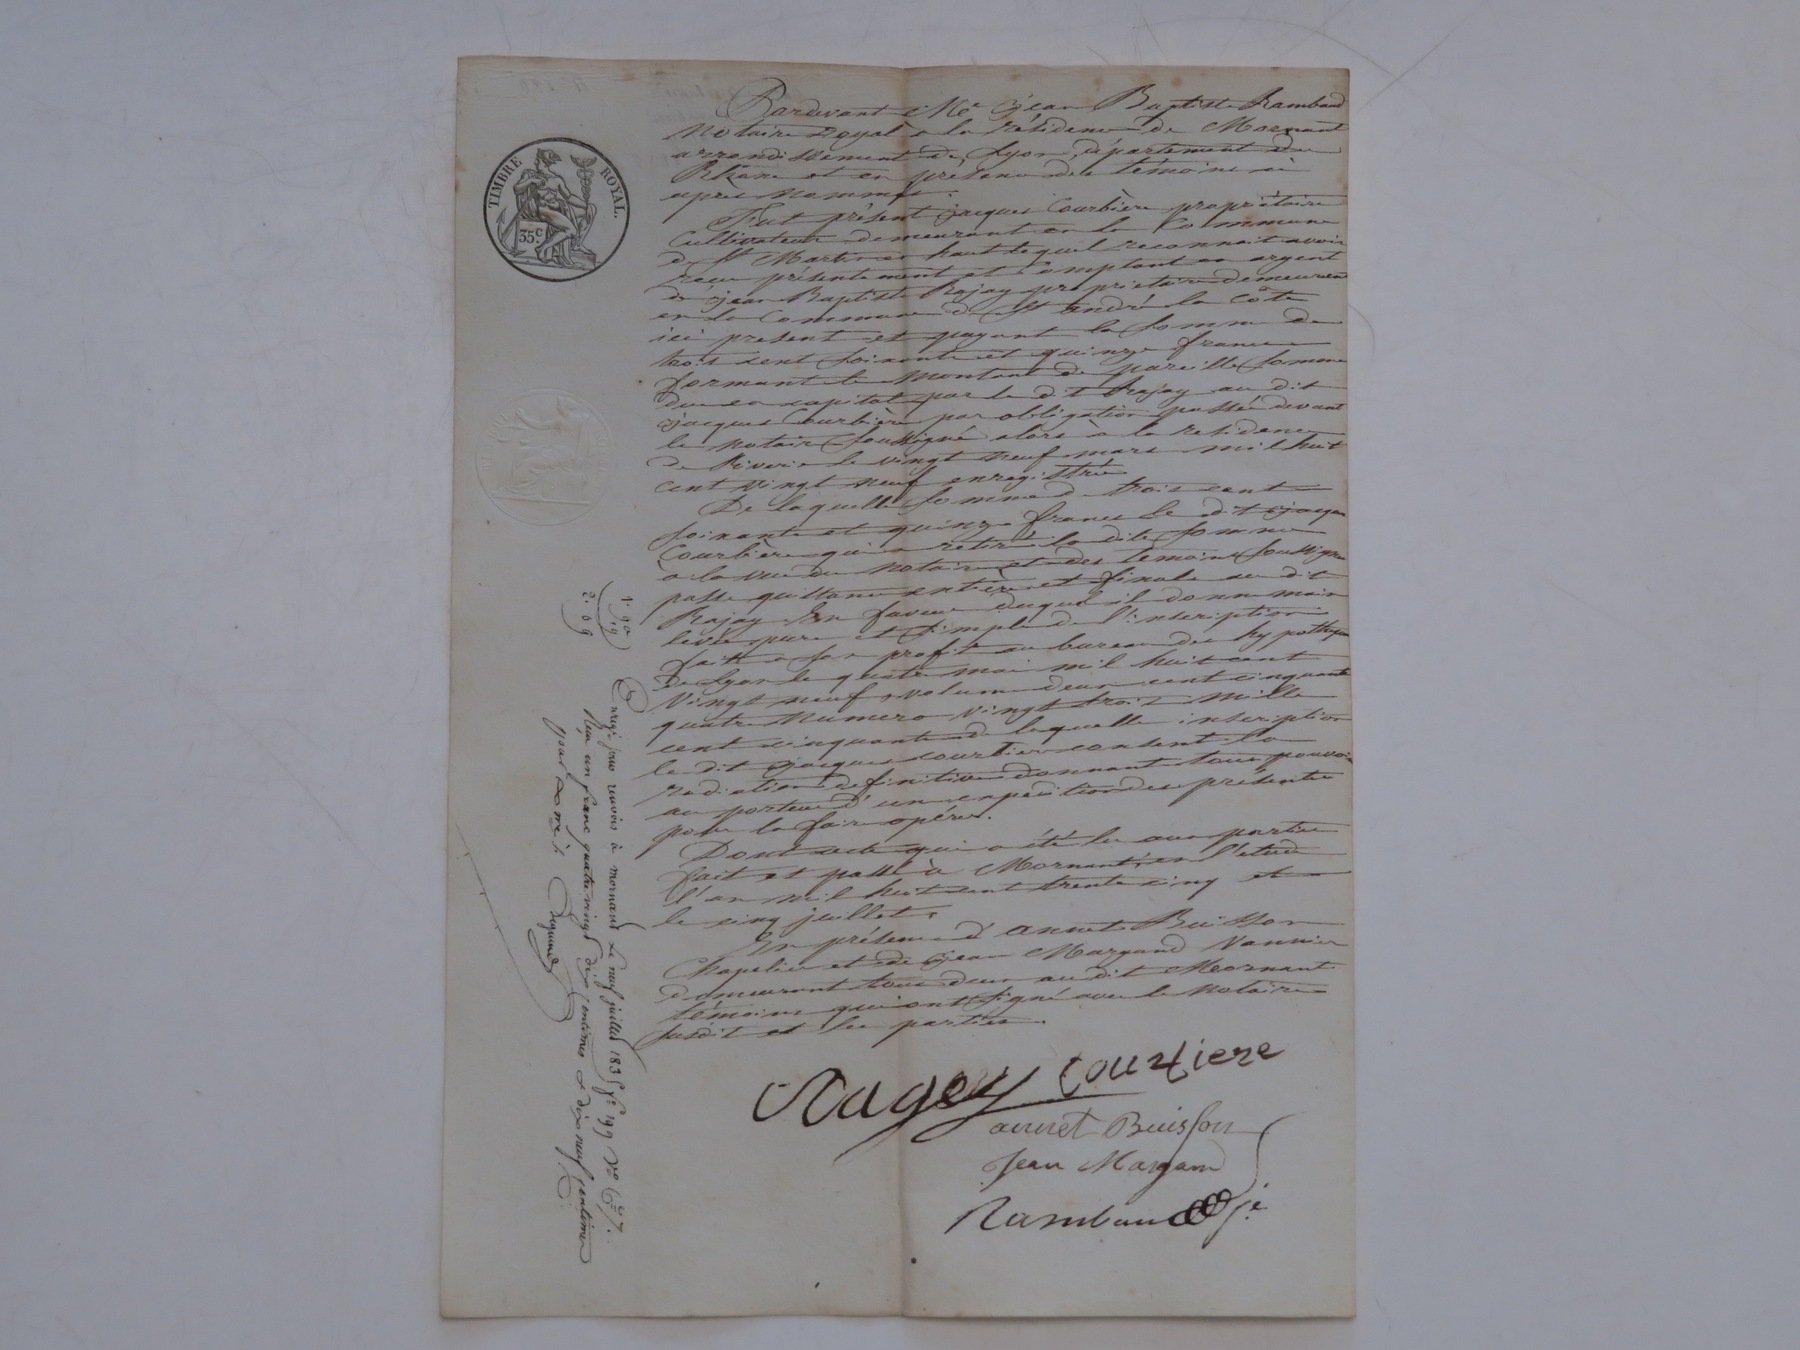 TIMBRE ROYAL.
35 c.
Pardevant Me Jean Baptiste Rambaud
Notaire Royal a la résidence de Mornant
arrondissement de Lyon, département du
Rhône et en présence des témoins ci
après nommés.
Fut présent Jacques Courbière propriétaire
Cultivateur demeurant en la Commune
de St Martin en haut lequel reconnait avoir
reçu présentement et comptant en argent
de Jean Baptiste Rajay propriétaire demeurant
en la Commune de St André la Côte
ici présent et payant la somme de
trois cent soixante et quinze francs
formant le montant de pareille somme
due en capital par le dit Rajay au dit
Jacques Courbière par obligation passée devant
le notaire soussigné alors à la résidence
de Riverie le vingt neuf mars mil huit
cent vingt neuf enregistrée
De laquelle somme de trois cent
soixante et quinze francs le dit Jacques
Courbière qui a retiré la dite somme
a la vue du notaire et des témoins soussignés
passe quittance entière et finale au dit
Rajay En faveur duquel il donne main
levée pure et simple de l'inscription
faite a son profit au bureau des hypothèques
de Lyon le quatre mai mil huit cent
vingt neuf, volume deux cent cinquante
quatre numéro vingt trois mille
cent cinquante de laquelle inscription
le dit Jacques Courbière consent la
radiation définitive donnant tous pouvoirs
au porteur d'une expédition des présentes
pour la faire opérer.
Dont acte qui a été lu aux parties
fait et passé à Mornant, en l'étude
l'an mil huit cent trente cinq et
le cinq juillet.
En présence d'annet Buisson
Chapelier et de Jean Margand Vannier
demeurant tous deux au dit Mornant
témoins qui ont signé avec le notaire
susdit et les parties.
Ragey Courtiere
annet Buisson
Jean Margand
Rambaud
1. 90
19
2. 09
Enregé sans renvois à mornant le neuf juillet 1835 fo 199 Vo Ce 7.
Reçu un franc quatre vingt dix centimes & dix neuf centimes
pour